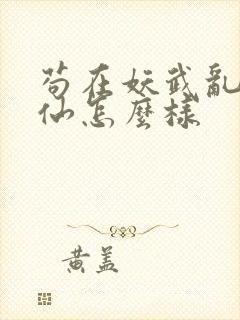 苟在妖武亂
仙怎麼樣
黃蓋